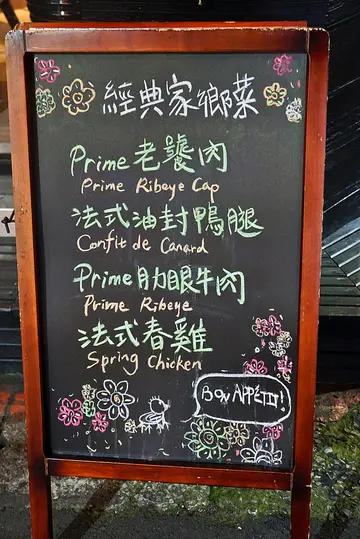 經典家鄉菜
Prime老饕肉
Prime Ribeye Cap
法式油封鴨腿
Confit de Canard
Prime肋眼牛肉
Prime Ribeye
法式春雞
Spring Chicken
Bon APPÉTIT!